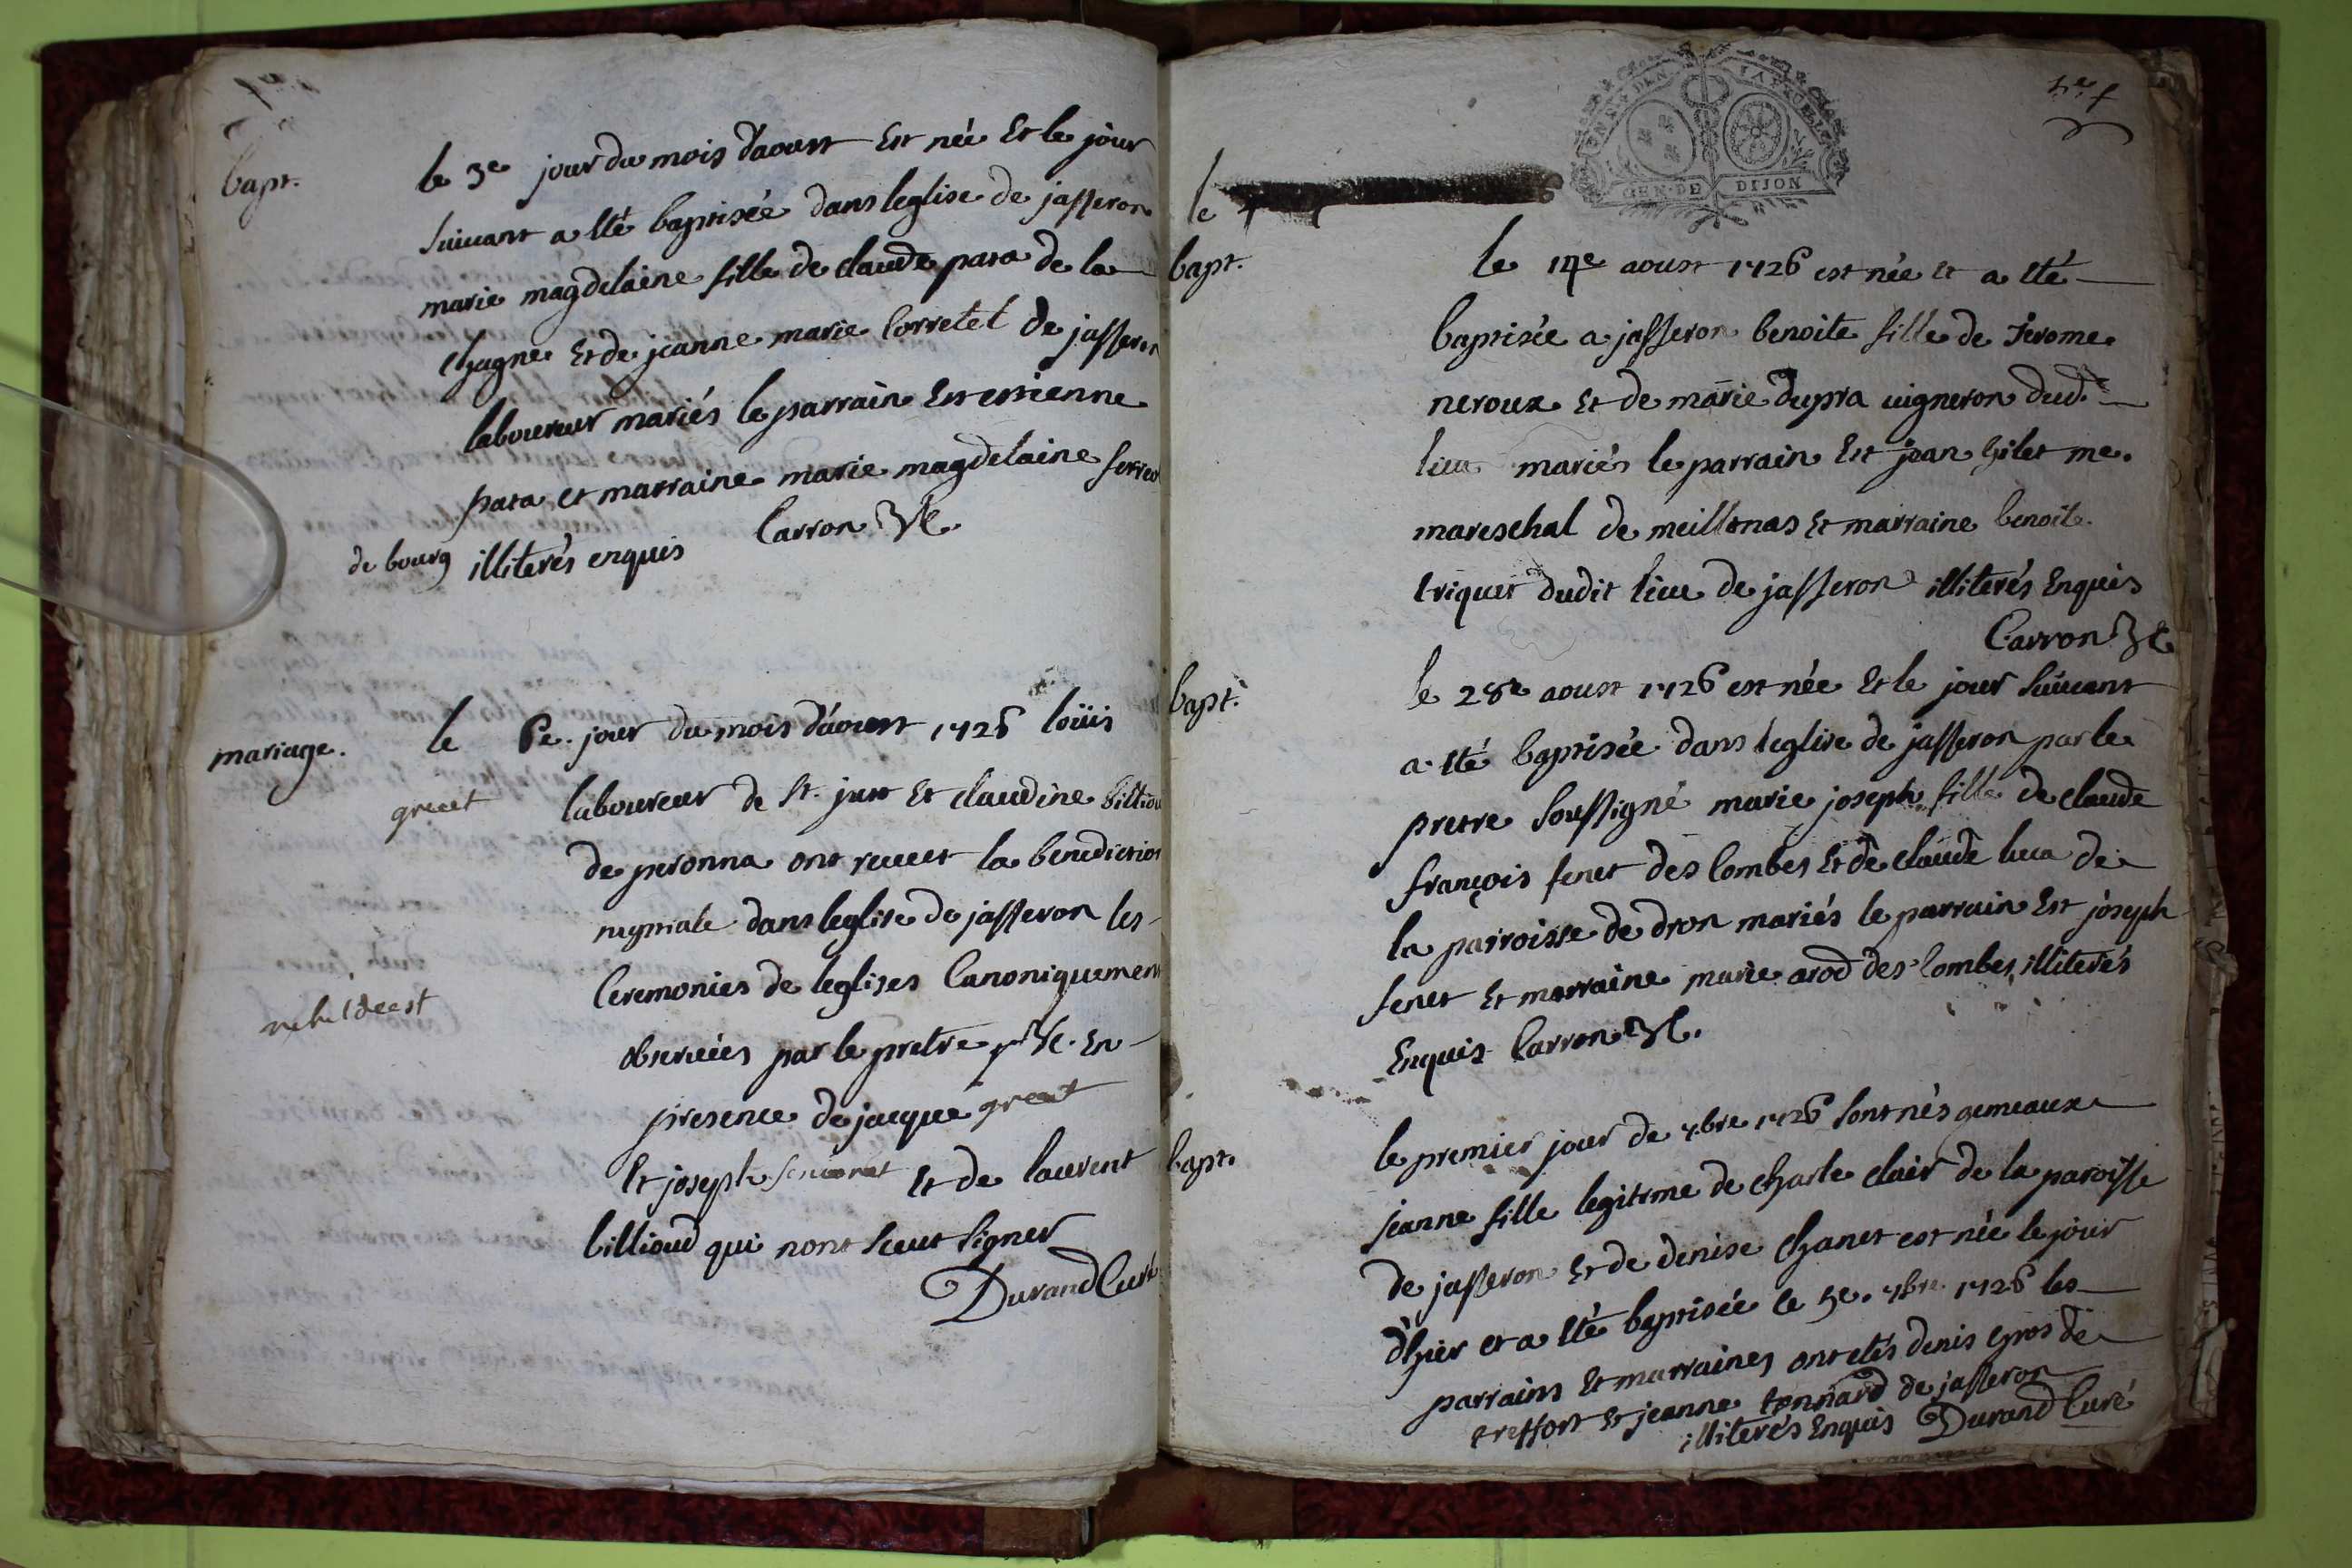 bapt. le 3e jour du mois d'aoust Est née Et le jour
suiuant a Eté baptisée dans leglise de jasseron
marie magdelaine fille de claude para de la
chagne Et de jeanne marie Corretet de jasseron
laboureur mariés le parrain Est estienne
para et marraine marie magdelaine
de bourg illiterés enquis Carron Vic.
mariage. le 6e. jour du mois d'aoust 1726 loüis
greut laboureur de St. just Et claudine billiou
de peronna ont receut la benediction
nuptiale dans leglise de jasseron les
Ceremonies de leglises Canoniquement
nihil deest
obseruées par le pretre Vic. En
presence de jacque greut
Et joseph Et de laurent
billioud qui nont sceut signer
Durand Curé
GEN. DE DIJON
le
bapt. le 14e aoust 1726 est née et a Eté
baptisée a jasseron benoite fille de Jerome
neroux Et de marie dupra uigneron dud.
lieu mariés le parrain Est jean gilet me.
mareschal de meillonas Et marraine benoite
triquet dudit lieu de jasseron illiterés Enquis
Carron Vic
bapt. le 28e aoust 1726 est née Et le jour suiuant
a Eté baptisée dans leglise de jasseron par le
pretre soussigné marie joseph fille de claude
françois fenet des Combes Et de claude luca de
la parroisse de dron mariés le parrain Est joseph
fenet Et marraine marie arod des Combes illiterés
Enquis Carron Vic.
bapt. le premier jour de 7bre 1726 sont nés gemeaux
jeanne fille legitime de charle clair de la paroisse
de jasseron Et de denise chanet est née le jour
d'hier et a Eté baptisée le 5e. 7bre. 1726 les
parrains Et marraines ont etés denis gros de
treffort Et jeanne tonnard de jasseron
illiterés Enquis Durand Curé